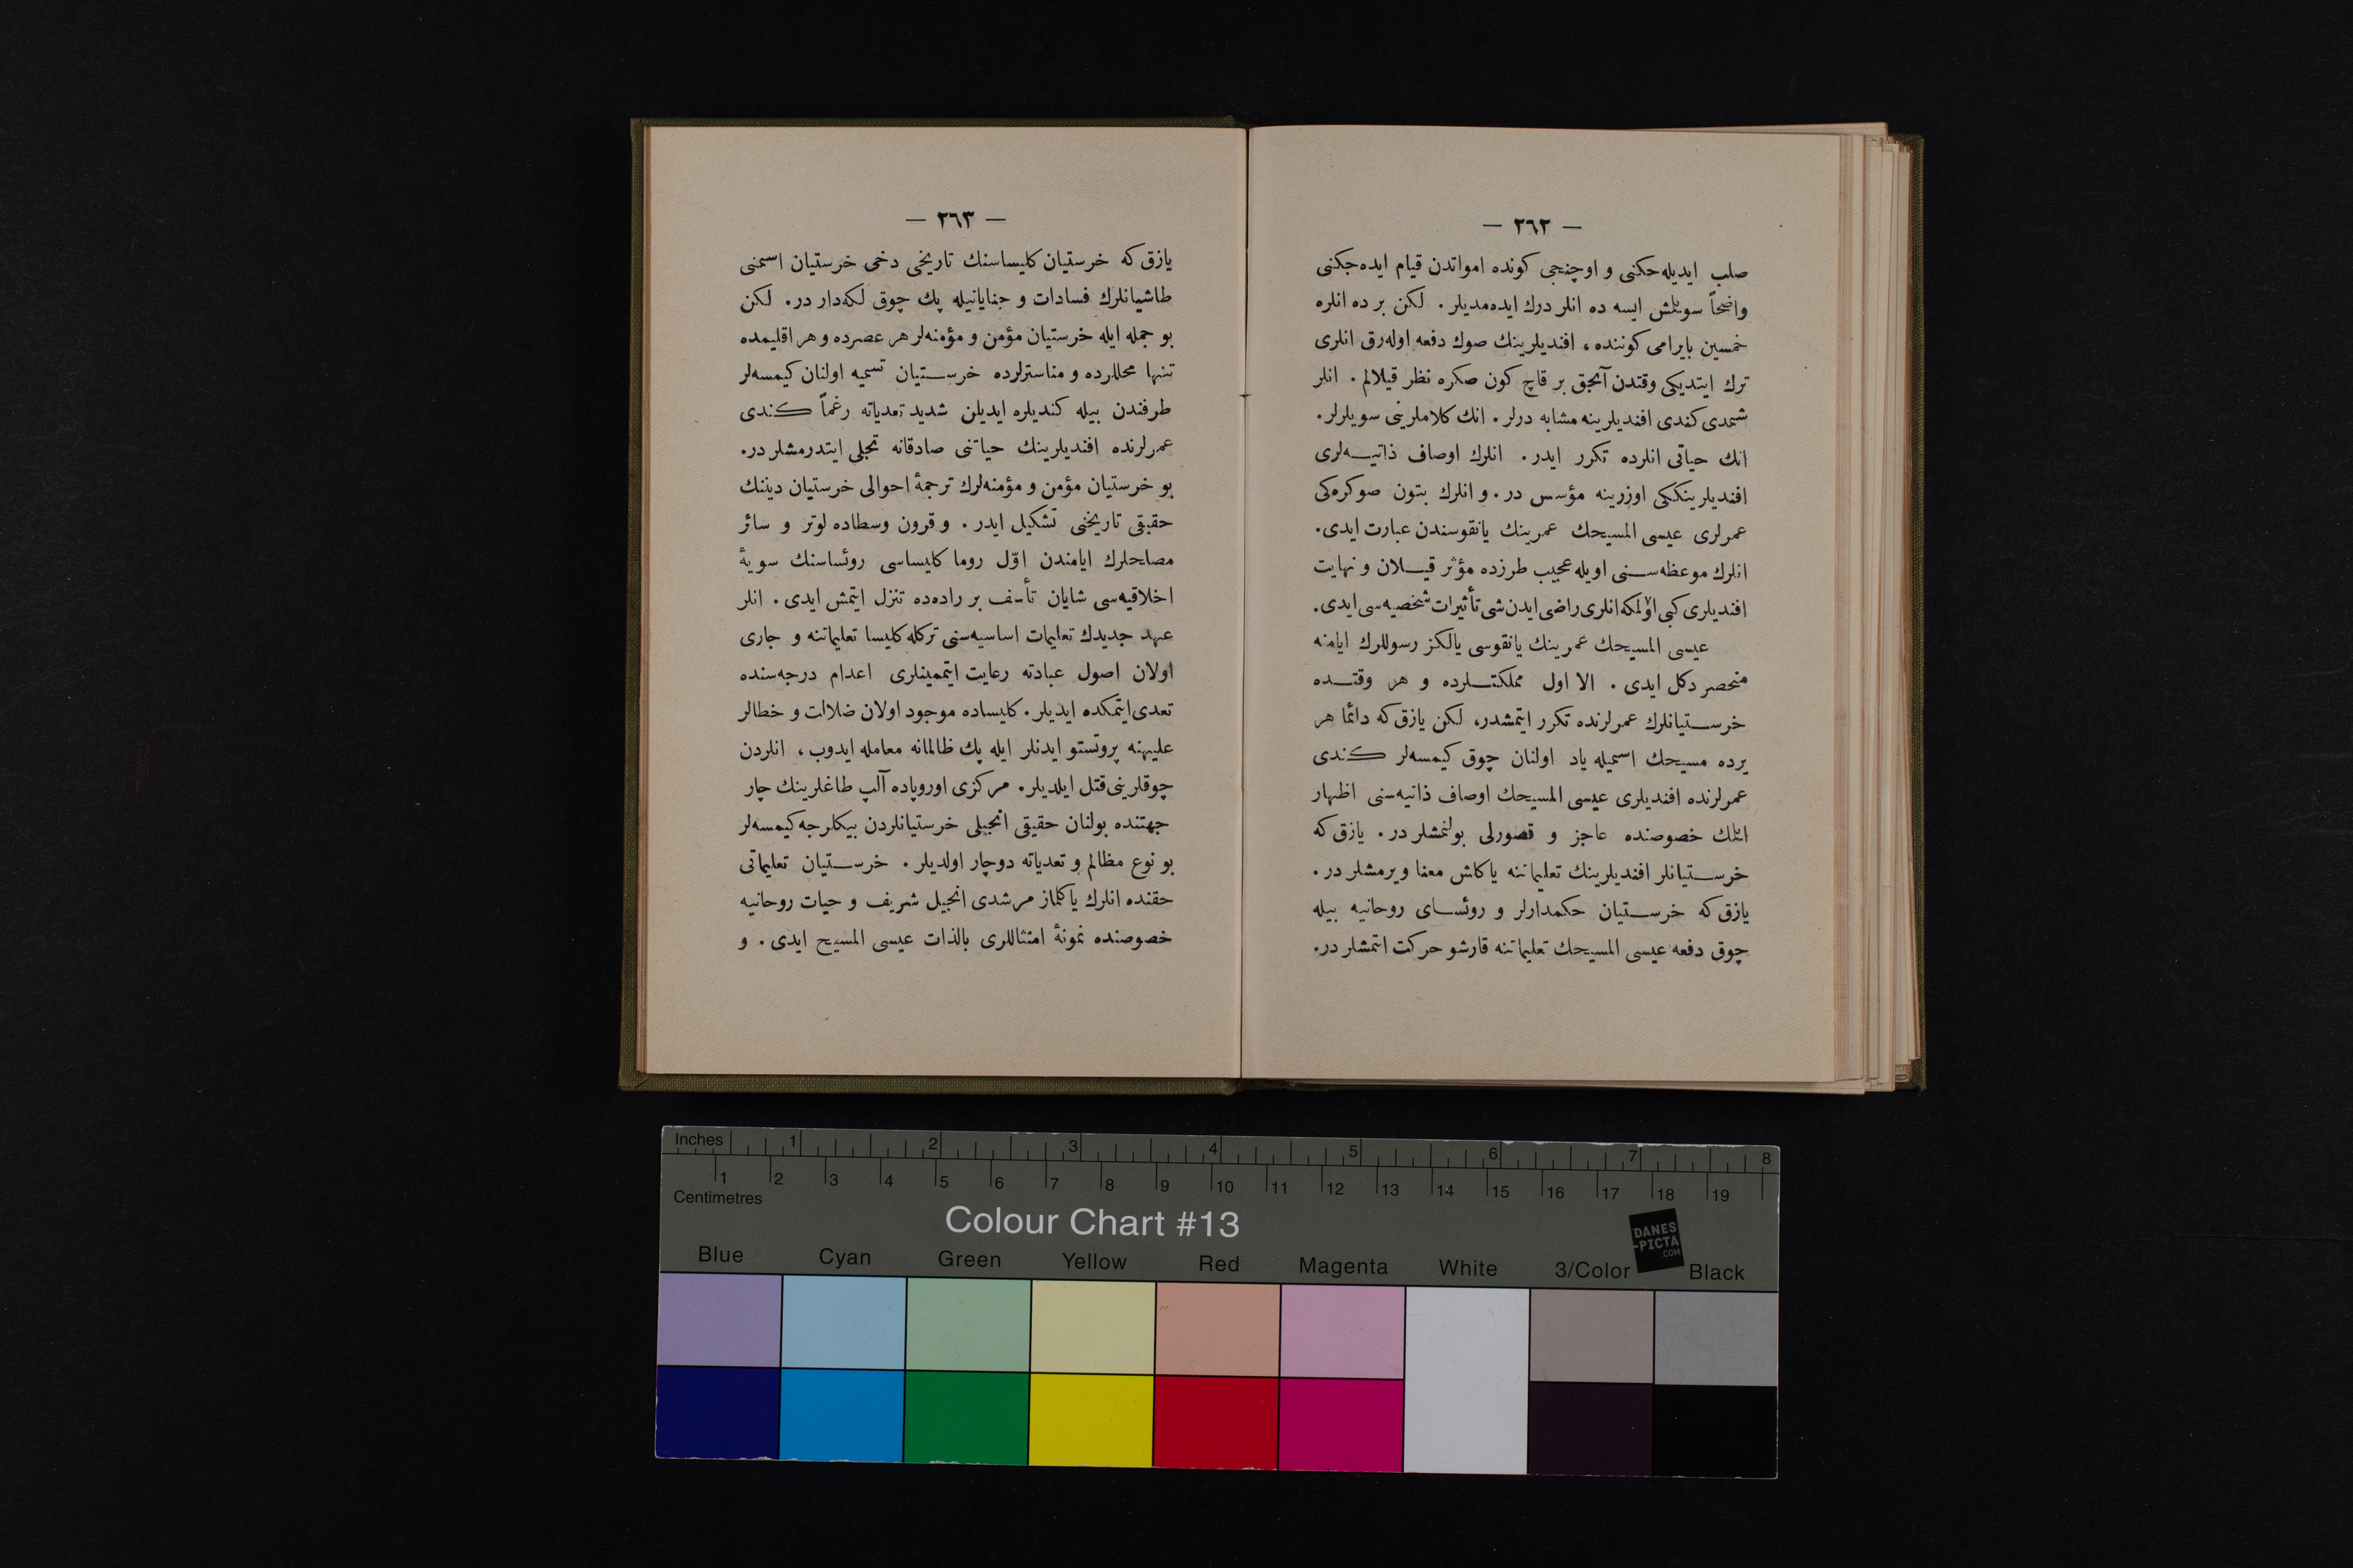 — ٢٦٢ —
صلب ایدیله‌جکنی و اوچنجی کونده امواتدن قیام ایده‌جکنی
واضحاً سویلمش ایسه ده انلر درك ایده‌مدیلر . لکن بر ده انلره
خمسین بایرامی کوننده ، افندیلرینك صوك دفعه اوله‌رق انلری
ترك ایتدیکی وقتدن آنجق بر قاچ کون صکره نظر قیلالم . انلر
شمدی کندی افندیلرینه مشابه درلر . انك کلاملرینی سویلرلر .
انك حیاتی انلرده تکرر ایدر . انلرك اوصاف ذاتیه‌لری
افندیلرینککی اوزرینه مؤسس در . و انلرك بتون صوکره‌کی
عمرلری عیسی المسیحك عمرینك یانقوسندن عبارت ایدی .
انلرك موعظه‌سنی اویله عجیب طرزده مؤثر قیلان و نهایت
افندیلری کبی اولمکه انلری راضی ایدن شی تأثیرات شخصیه‌سی ایدی .
عیسی المسیحك عمرینك یانقوسی یالکز رسوللرك ایامنه
منحصر دکل ایدی . الا اول مملکتلرده و هر وقتده
خرستیانلرك عمرلرنده تکرر ایتمشدر ، لکن یازق که دائما هر
یرده مسیحك اسمیله یاد اولنان چوق کیمسه‌لر کندی
عمرلرنده افندیلری عیسی المسیحك اوصاف ذاتیه‌سنی اظهار
ایتمك خصوصنده عاجز و قصورلی بولنمشلر در . یازق که
خرستیانلر افندیلرینك تعلیماتنه یاکلش معنا ویرمشلر در .
یازق که خرستیان حکمدارلر و رؤسای روحانیه بیله
چوق دفعه عیسی المسیحك تعلیماتنه قارشو حرکت اتمشلر در .
— ٢٦٣ —
یازق که خرستیان کلیساسنك تاریخی دخی خرستیان اسمنی
طاشیانلرك فسادات و جنایاتیله پك چوق لکه‌دار در . لکن
بو جمله ایله خرستیان مؤمن و مؤمنه‌لر هر عصرده و هر اقلیمده
تنها محللرده و مناسترلرده خرستیان تسمیه اولنان کیمسه‌لر
طرفندن بیله کندیلره ایدیلن شدید تعدیاته رغماً کندی
عمرلرنده افندیلرینك حیاتنی صادقانه تجلی ایتدرمشلر در .
بو خرستیان مؤمن و مؤمنه‌لرك ترجمهٔ احوالی خرستیان دیننك
حقیقی تاریخنی تشکیل ایدر . و قرون وسطاده لوتر و سائر
مصلحلرك ایامندن اوّل روما کلیساسی رؤساسنك سویهٔ
اخلاقیه‌سی شایان تأسف بر راده‌ده تنزل ایتمش ایدی . انلر
عهد جدیدك تعلیمات اساسیه‌سنی ترکله کلیسا تعلیماتنه و جاری
اولان اصول عبادته رعایت ایتمینلری اعدام درجه‌سنده
تعدی ایتمکده ایدیلر . کلیساده موجود اولان ضلالت و خطالر
علیهنه پروتستو ایدنلر ایله پك ظالمانه معامله ایدوب ، انلردن
چوقلرینی قتل ایلدیلر . مرکزی اوروپاده آلپ طاغلرینك چار
جهتنده بولنان حقیقی انجیلی خرستیانلردن بیکلرجه کیمسه‌لر
بو نوع مظالم و تعدیاته دوچار اولدیلر . خرستیان تعلیماتی
حقنده انلرك یاکلماز مرشدی انجیل شریف و حیات روحانیه
خصوصنده نمونهٔ امتثاللری بالذات عیسی المسیح ایدی . و
Inches 1 2 3 4 5 6 7 8
1 2 3 4 5 6 7 8 9 10 11 12 13 14 15 16 17 18 19
Centimetres
Colour Chart #13
DANES
-PICTA
.COM
Blue Cyan Green Yellow Red Magenta White 3/Color Black